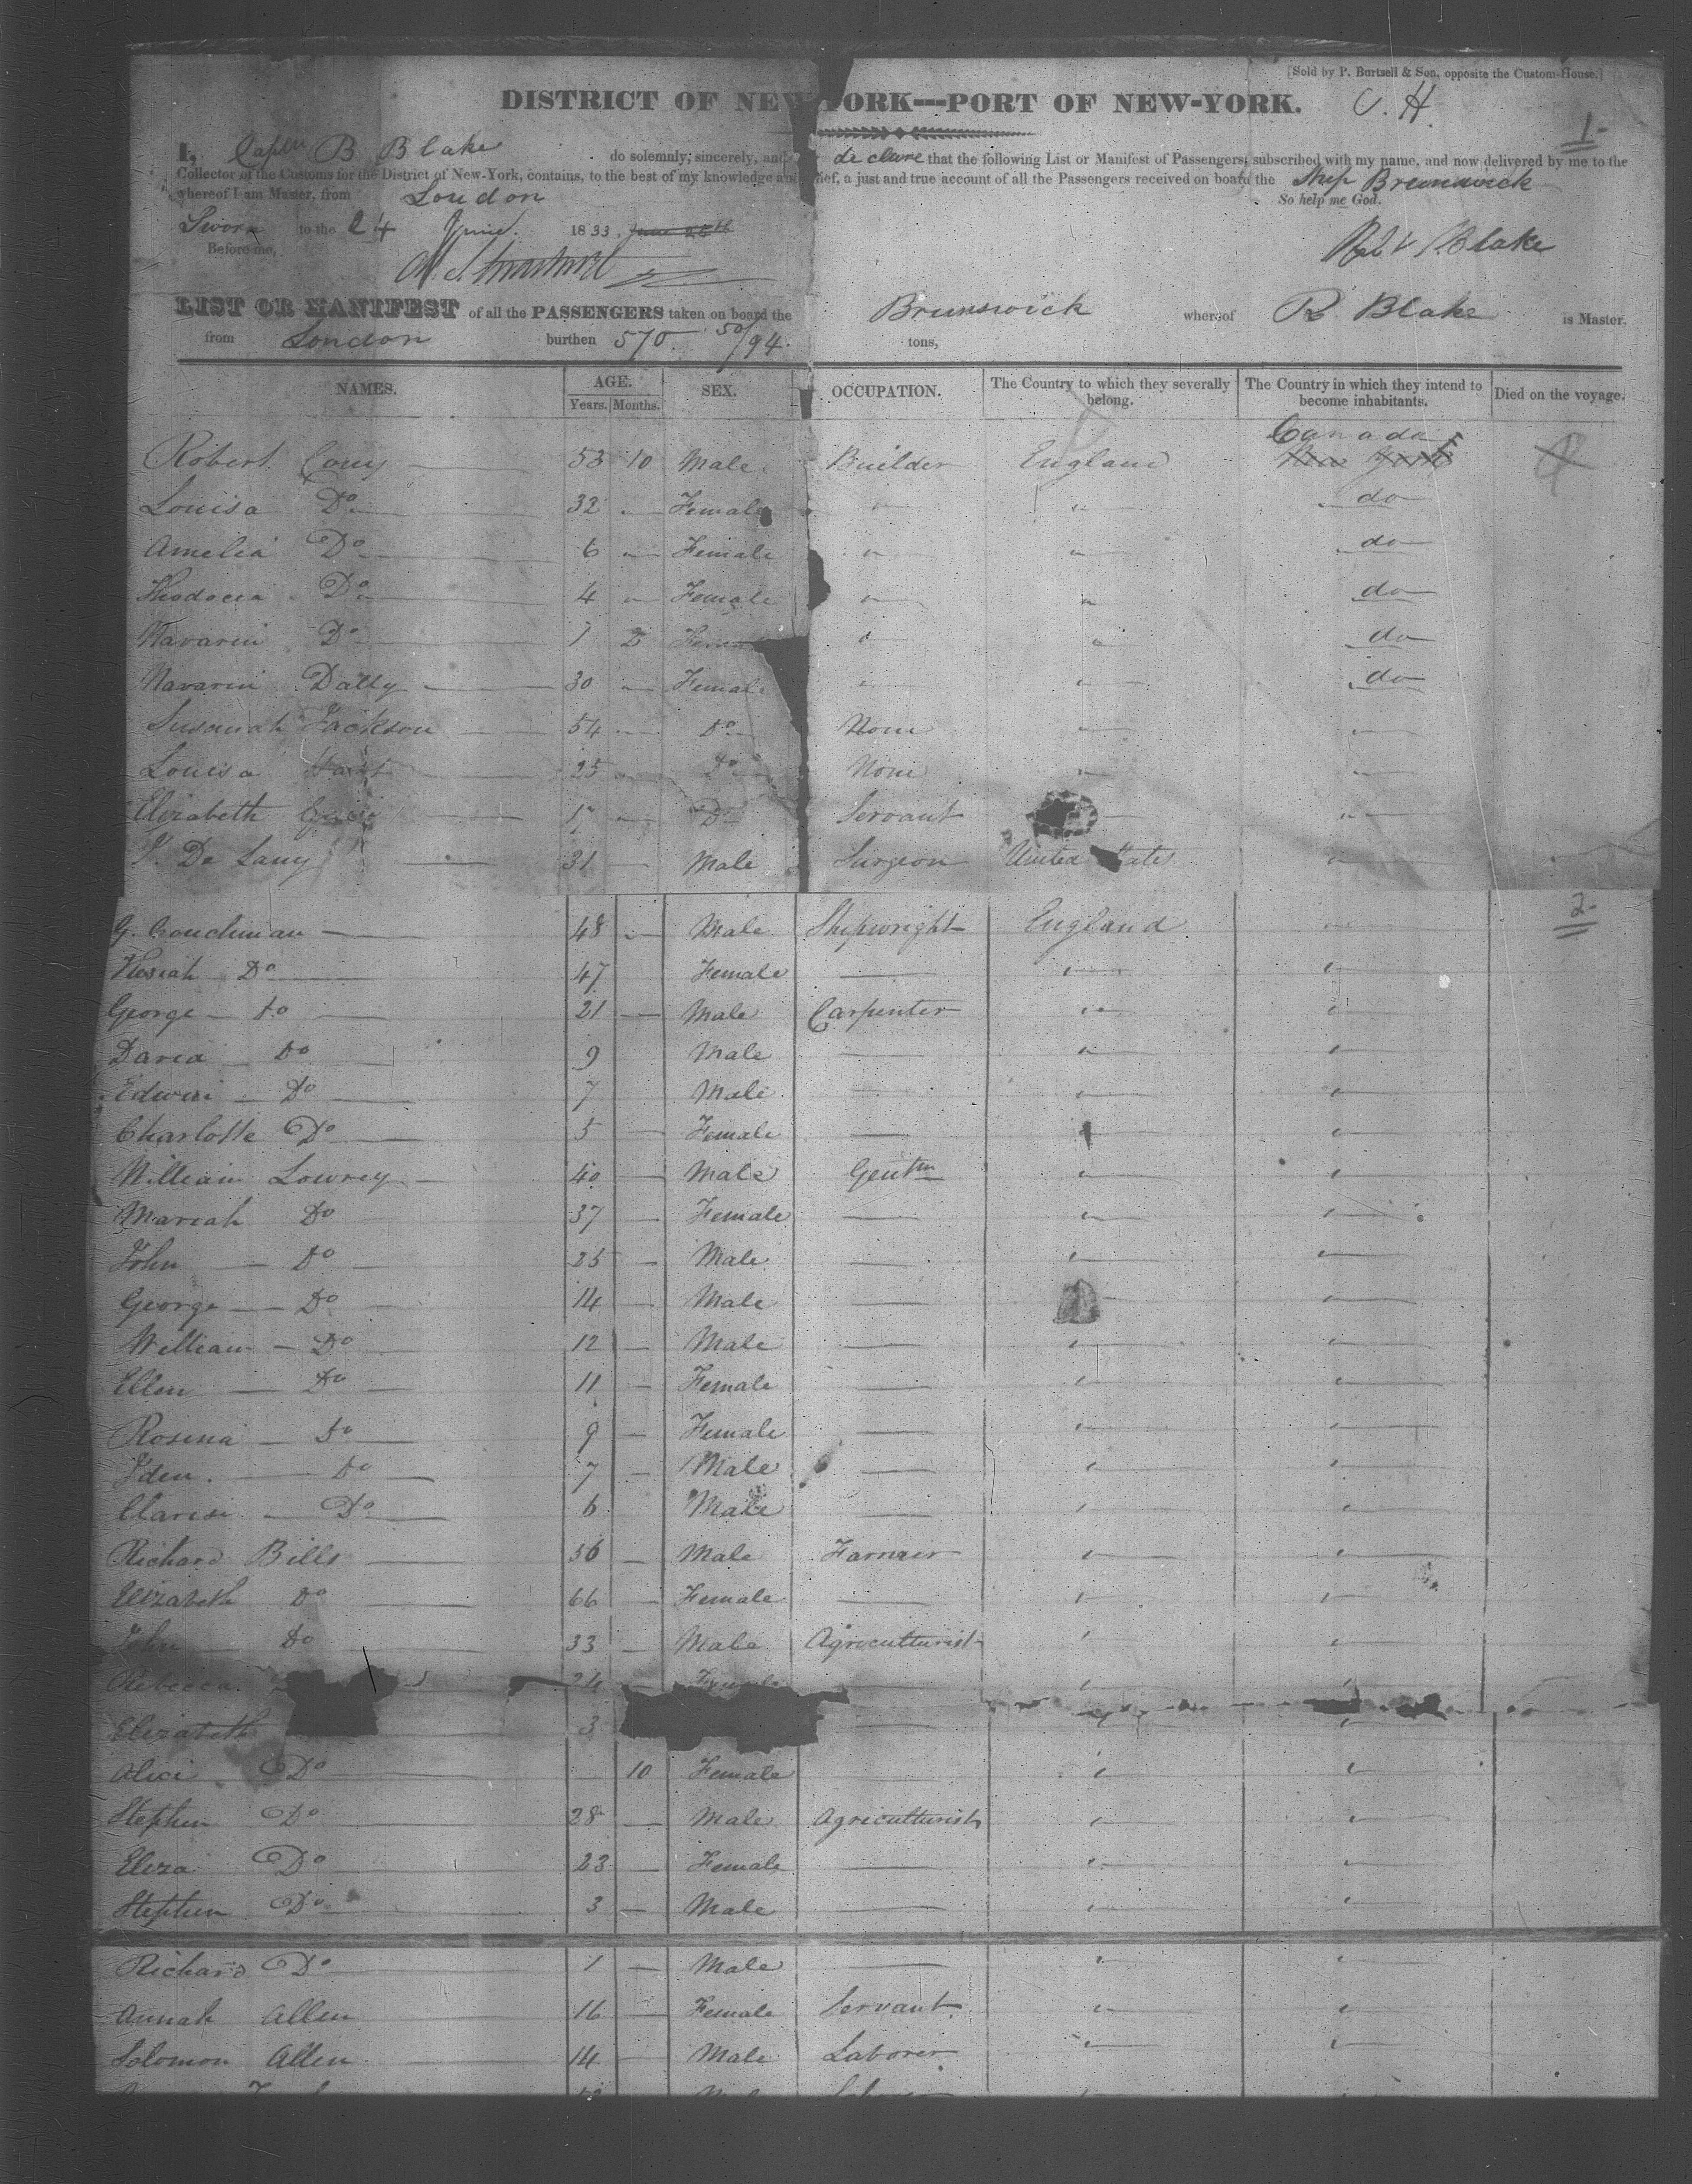 [Sold by P. Burtsell & Son, opposite the Custom-House.]
DISTRICT OF NEW YORK---PORT OF NEW-YORK. C. H.
1
I, B Blake do solemnly, sincerely, and declare that the following List or Manifest of Passengers, subscribed with my name, and now delivered by me to the
Collector of the Customs for the District of New-York, contains, to the best of my knowledge and belief, a just and true account of all the Passengers received on board the Ship Brunswick
whereof I am Master, from London So help me God.
Sworn to the 24 June 1833.
Blake
Before me,
LIST OR MANIFEST of all the PASSENGERS taken on board the Brunswick whereof R Blake is Master,
from London burthen 570 50/94 tons,
NAMES. AGE. SEX. OCCUPATION. The Country to which they severally belong. The Country in which they intend to become inhabitants. Died on the voyage.
Years. Months.
Canada
Robert 53 10 Male Builder England New York
Louisa Do 32 Female do
Amelia Do 6 Female do
Do 4 Female do
Navarin Do 1 2 do
Navarin Dally 30 Female do
Susanah Jackson 54 Do None
Louisa 25 Do None
Elizabeth Do Servant
De Lany 31 Male Surgeon United States
G. Couchman 48 Male Shipwright England 2
Do 47 Female
George do 21 Male Carpenter
David Do 9 Male
Edwin Do 7 Male
Charlotte Do 5 Female
William Lowrey 40 Male Gentm
Mariah Do 37 Female
John Do 25 Male
George Do 14 Male
William Do 12 Male
Ellen Do 11 Female
Rosina Do 9 Female
Iden Do 7 Male
Do 6 Male
Richard Bills 56 Male Farmer
Elizabeth Do 66 Female
John Do 33 Male Agriculturist
Rebecca 24 Female
Elizabeth 3
Alice Do 10 Female
Stephen Do 28 Male Agriculturist
Eliza Do 23 Female
Stephen Do 3 Male
Richard Do 1 Male
Annah Allen 16 Female Servant
Solomon Allen 14 Male Laborer